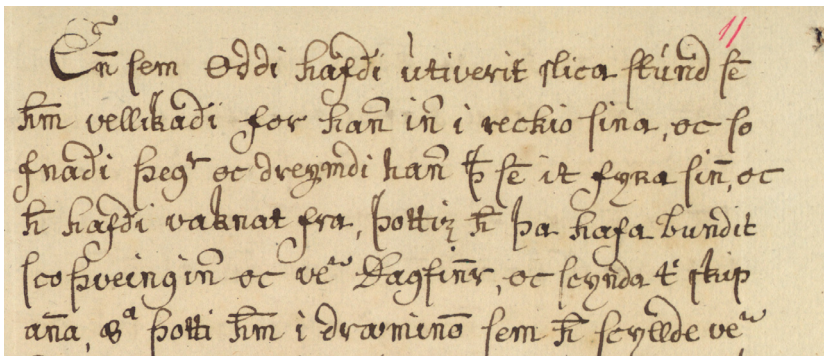 11
En̄ sem Oddi hafði útiverit slica stúnd sē
hm̄ vellikaði for han̄ in̄ i reckio sina, oc so
fnaði þegr oc dreymdi han̄ þ sē it fyrra sin̄, oc
h̄ hafði vaknat fra, þottiz h̄ þa hafa bundit
scoþveingin̄ oc ve Dagfin̄r, oc scynda t skip
an̄a, þotti hm̄ i drauminō sem h̄ scyllde ve